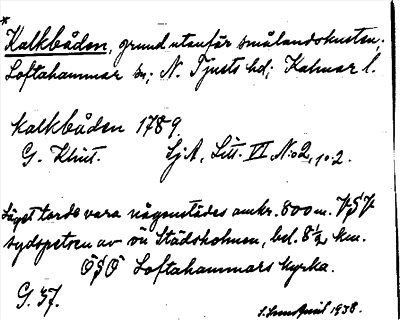 *
Kalkbåden, grund utanför smålandskusten;
Loftahammar sn; N. Tjusts hd; Kalmar l.
Kalkbåden 1789.
G. Klint. SjA, Litt. VI N:o 2, 10:2.
Läget torde vara någonstädes omkr. 800 m. VSV
sydspetsen av ön Städsholmen, bel. 8 ½ km.
ÖSÖ Loftahammars kyrka.
G. 57.
1938.